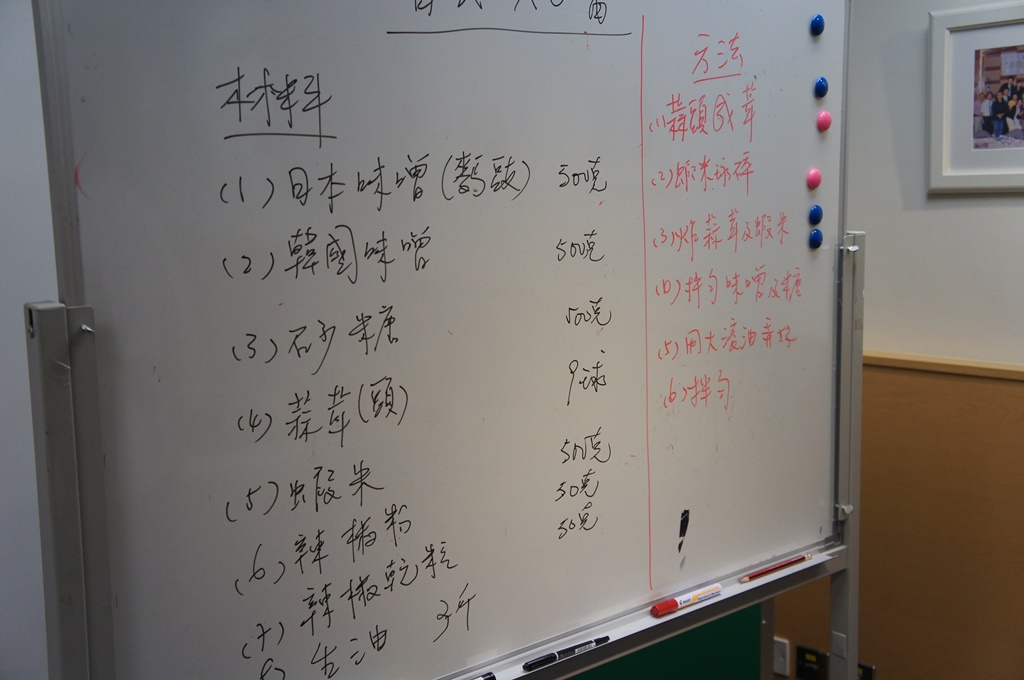 材料
(1) 日本味噌(麵豉) 500克
(2) 韓國味噌 500克
(3) 砂糖 500克
(4) 蒜茸(頭) 9球
(5) 蝦米 500克
(6) 辣椒粉 50克
(7) 辣椒乾粒 50克
生油 3斤
方法
(1) 蒜頭成茸
(2) 蝦米
(3) 炸蒜茸及蝦米
拌勻味噌及糖
(5) 用大滾油
(6) 拌勻
!